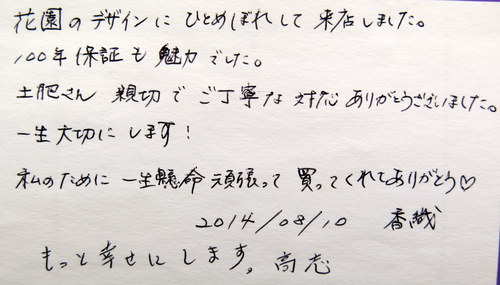 花園のデザインにひとめぼれして来店しました。
100年保証も魅力でした。
土肥さん 親切でご丁寧な対応ありがとうございました。
一生大切にします!
私のために一生懸命頑張って買ってくれてありがとう♡
2014/08/10 香織
もっと幸せにします。高志